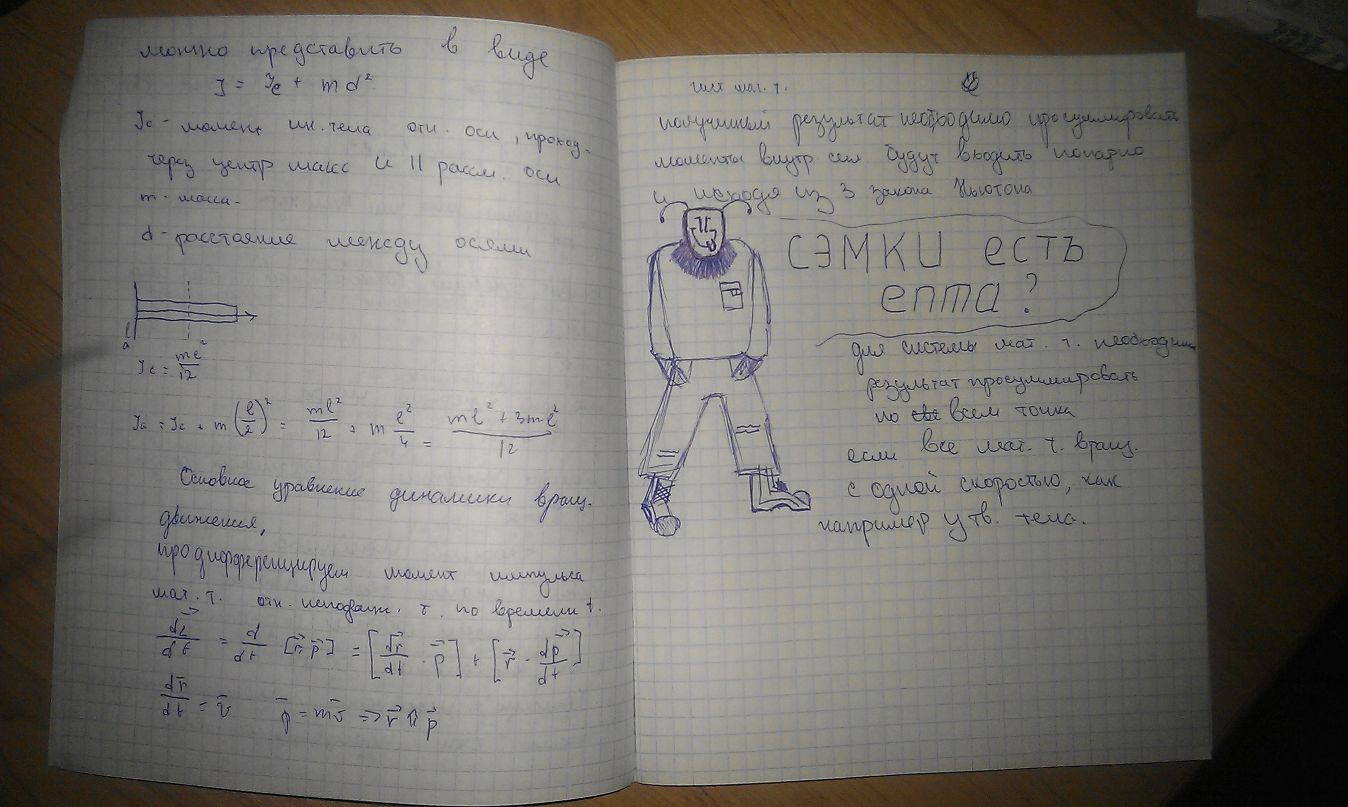 можно представить в виде
J = Jc + md²
Jc - момент ин. тела отн. оси, проход.
через центр масс и || рассм. оси
m - масса
d - расстояние между осями
a
Jc = ml²/12
Ja = Jc + m(l/2)² = ml²/12 + m l²/4 = ml² + 3ml²/12
Основное уравнение динамики вращ.
движения,
продифференцируем момент импульса
мат. т. отн. неподвиж. т. по времени t.
dL⃗/dt = d/dt [r⃗ p⃗] = [dr⃗/dt · p⃗] + [r⃗ · dp⃗/dt]
dr̄/dt = v̄ p̄ = mv̄ => r⃗ ⇈ p⃗
мат. т.
полученный результат необходимо просуммировать
моменты внутр сил будут входить попарно
и исходя из 3 закона Ньютона
СЭМКИ есть
епта?
для системы мат. т. необходимо
результат просуммировать
по всем точка
если все мат. т. вращ.
с одной скоростью, как
например у тв. тела.